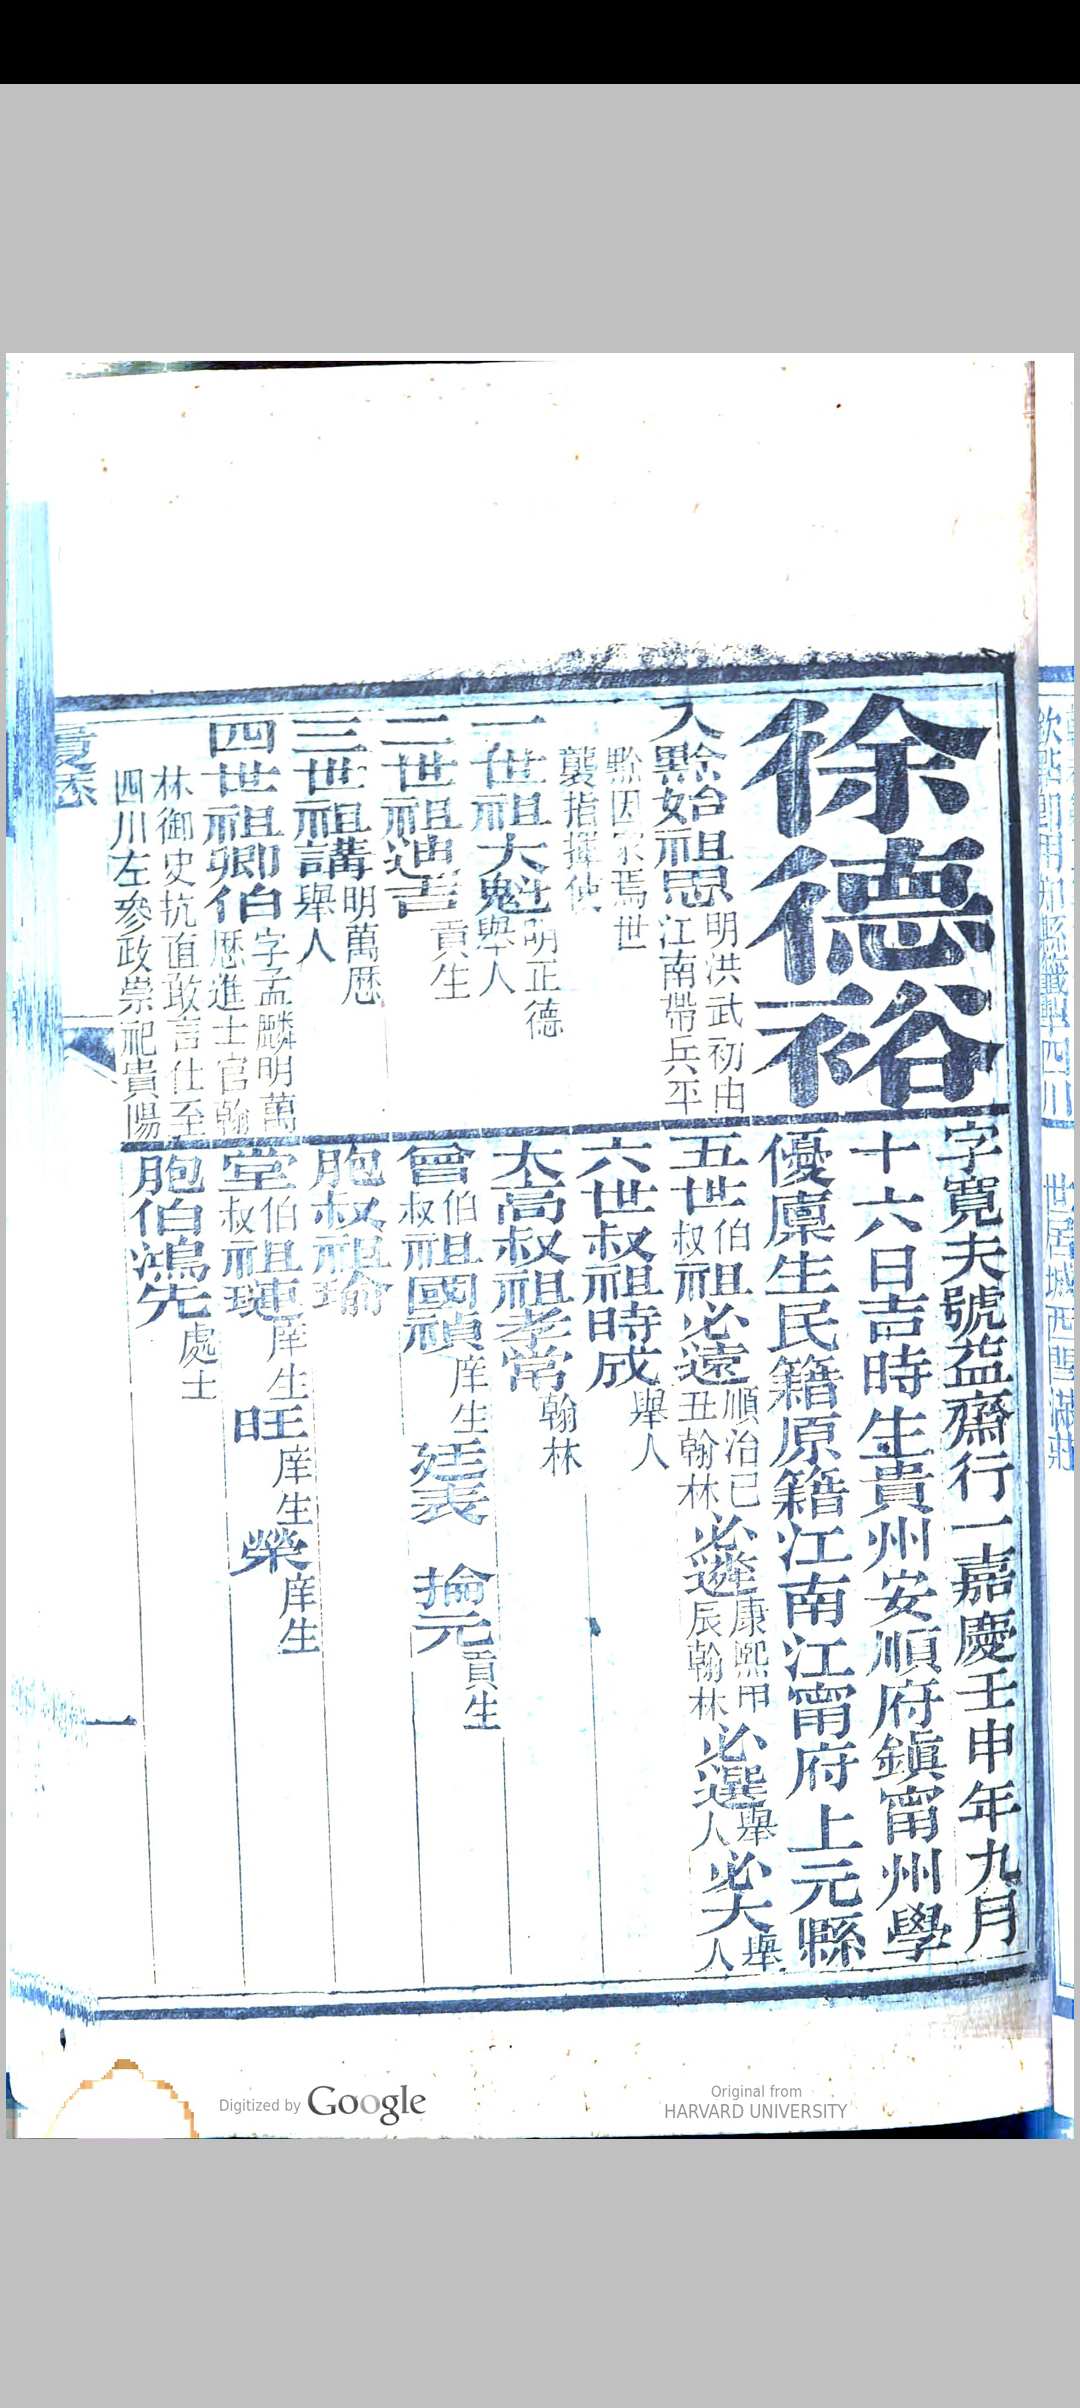 徐德裕
字寬夫號益齋行一嘉慶壬申年九月
十六日吉時生貴州安順府鎮甯州學
優廩生民籍原籍江南江甯府上元縣
入黔始祖思明洪武初由
江南帶兵平
黔因家焉世
襲指揮使
一世祖大魁明正德
舉人
二世祖廸書貢生
三世祖講明萬歷
舉人
四世祖卿伯字孟麟明萬
歷進士官翰
林御史抗直敢言仕至
四川左參政崇祀貴陽
五世伯
叔祖必遠順治己
丑翰林必遴康熙甲
辰翰林必選舉
人必大舉
人
六世叔祖時成舉人
太高叔祖孝常翰林
曾伯
叔祖國禎庠生廷表 掄元貢生
胞叔祖瑜
堂伯
叔祖璉庠生旺庠生榮庠生
胞伯鴻先處士
一
Digitized by Google
Original from
HARVARD UNIVERSITY